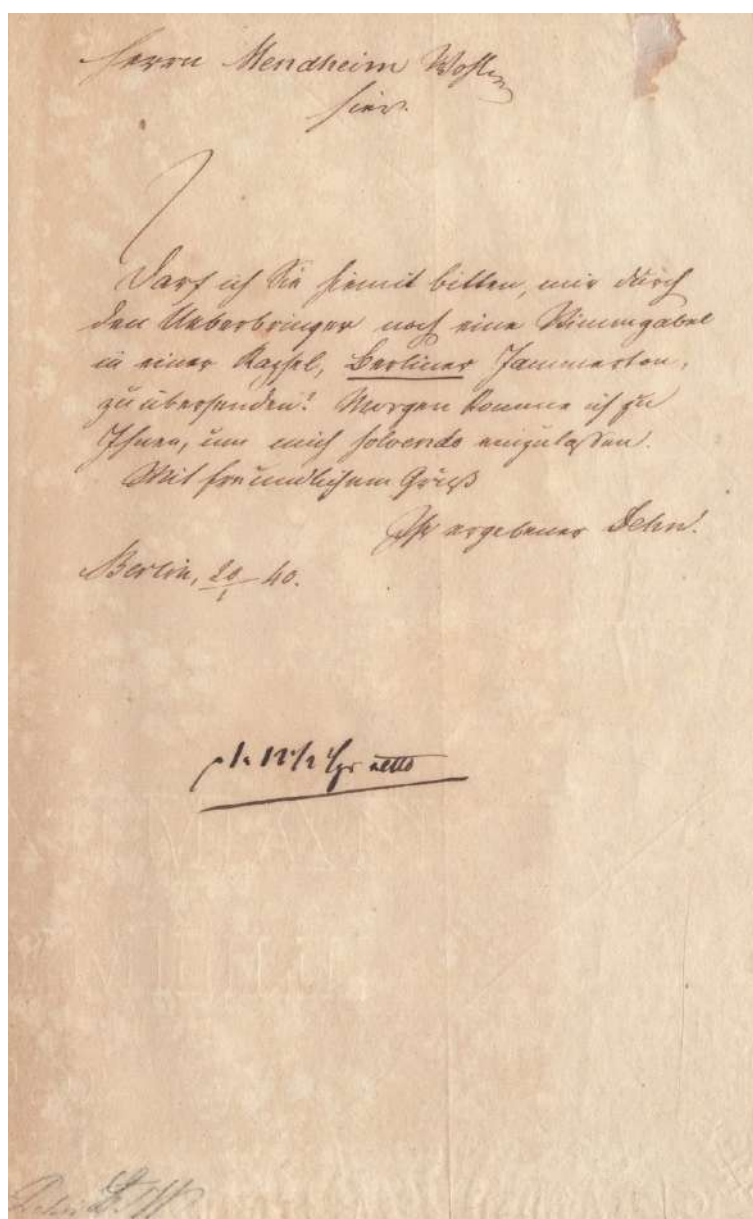 Herrn Mendheim Wohlg
hier.
Darf ich Sie hiemit bitten, mir durch
den Ueberbringer noch eine Stimmgabel
in einer Kapsel, Berliner Kammerton,
zu übersenden! Morgen komme ich zu
Ihnen, um mich solvendo einzulassen.
Mit freundlichem Gruß
Ihr ergebener Dehn.
Berlin, 20/1 40.
12 1/2 Sgr netto
Dehn S. W.